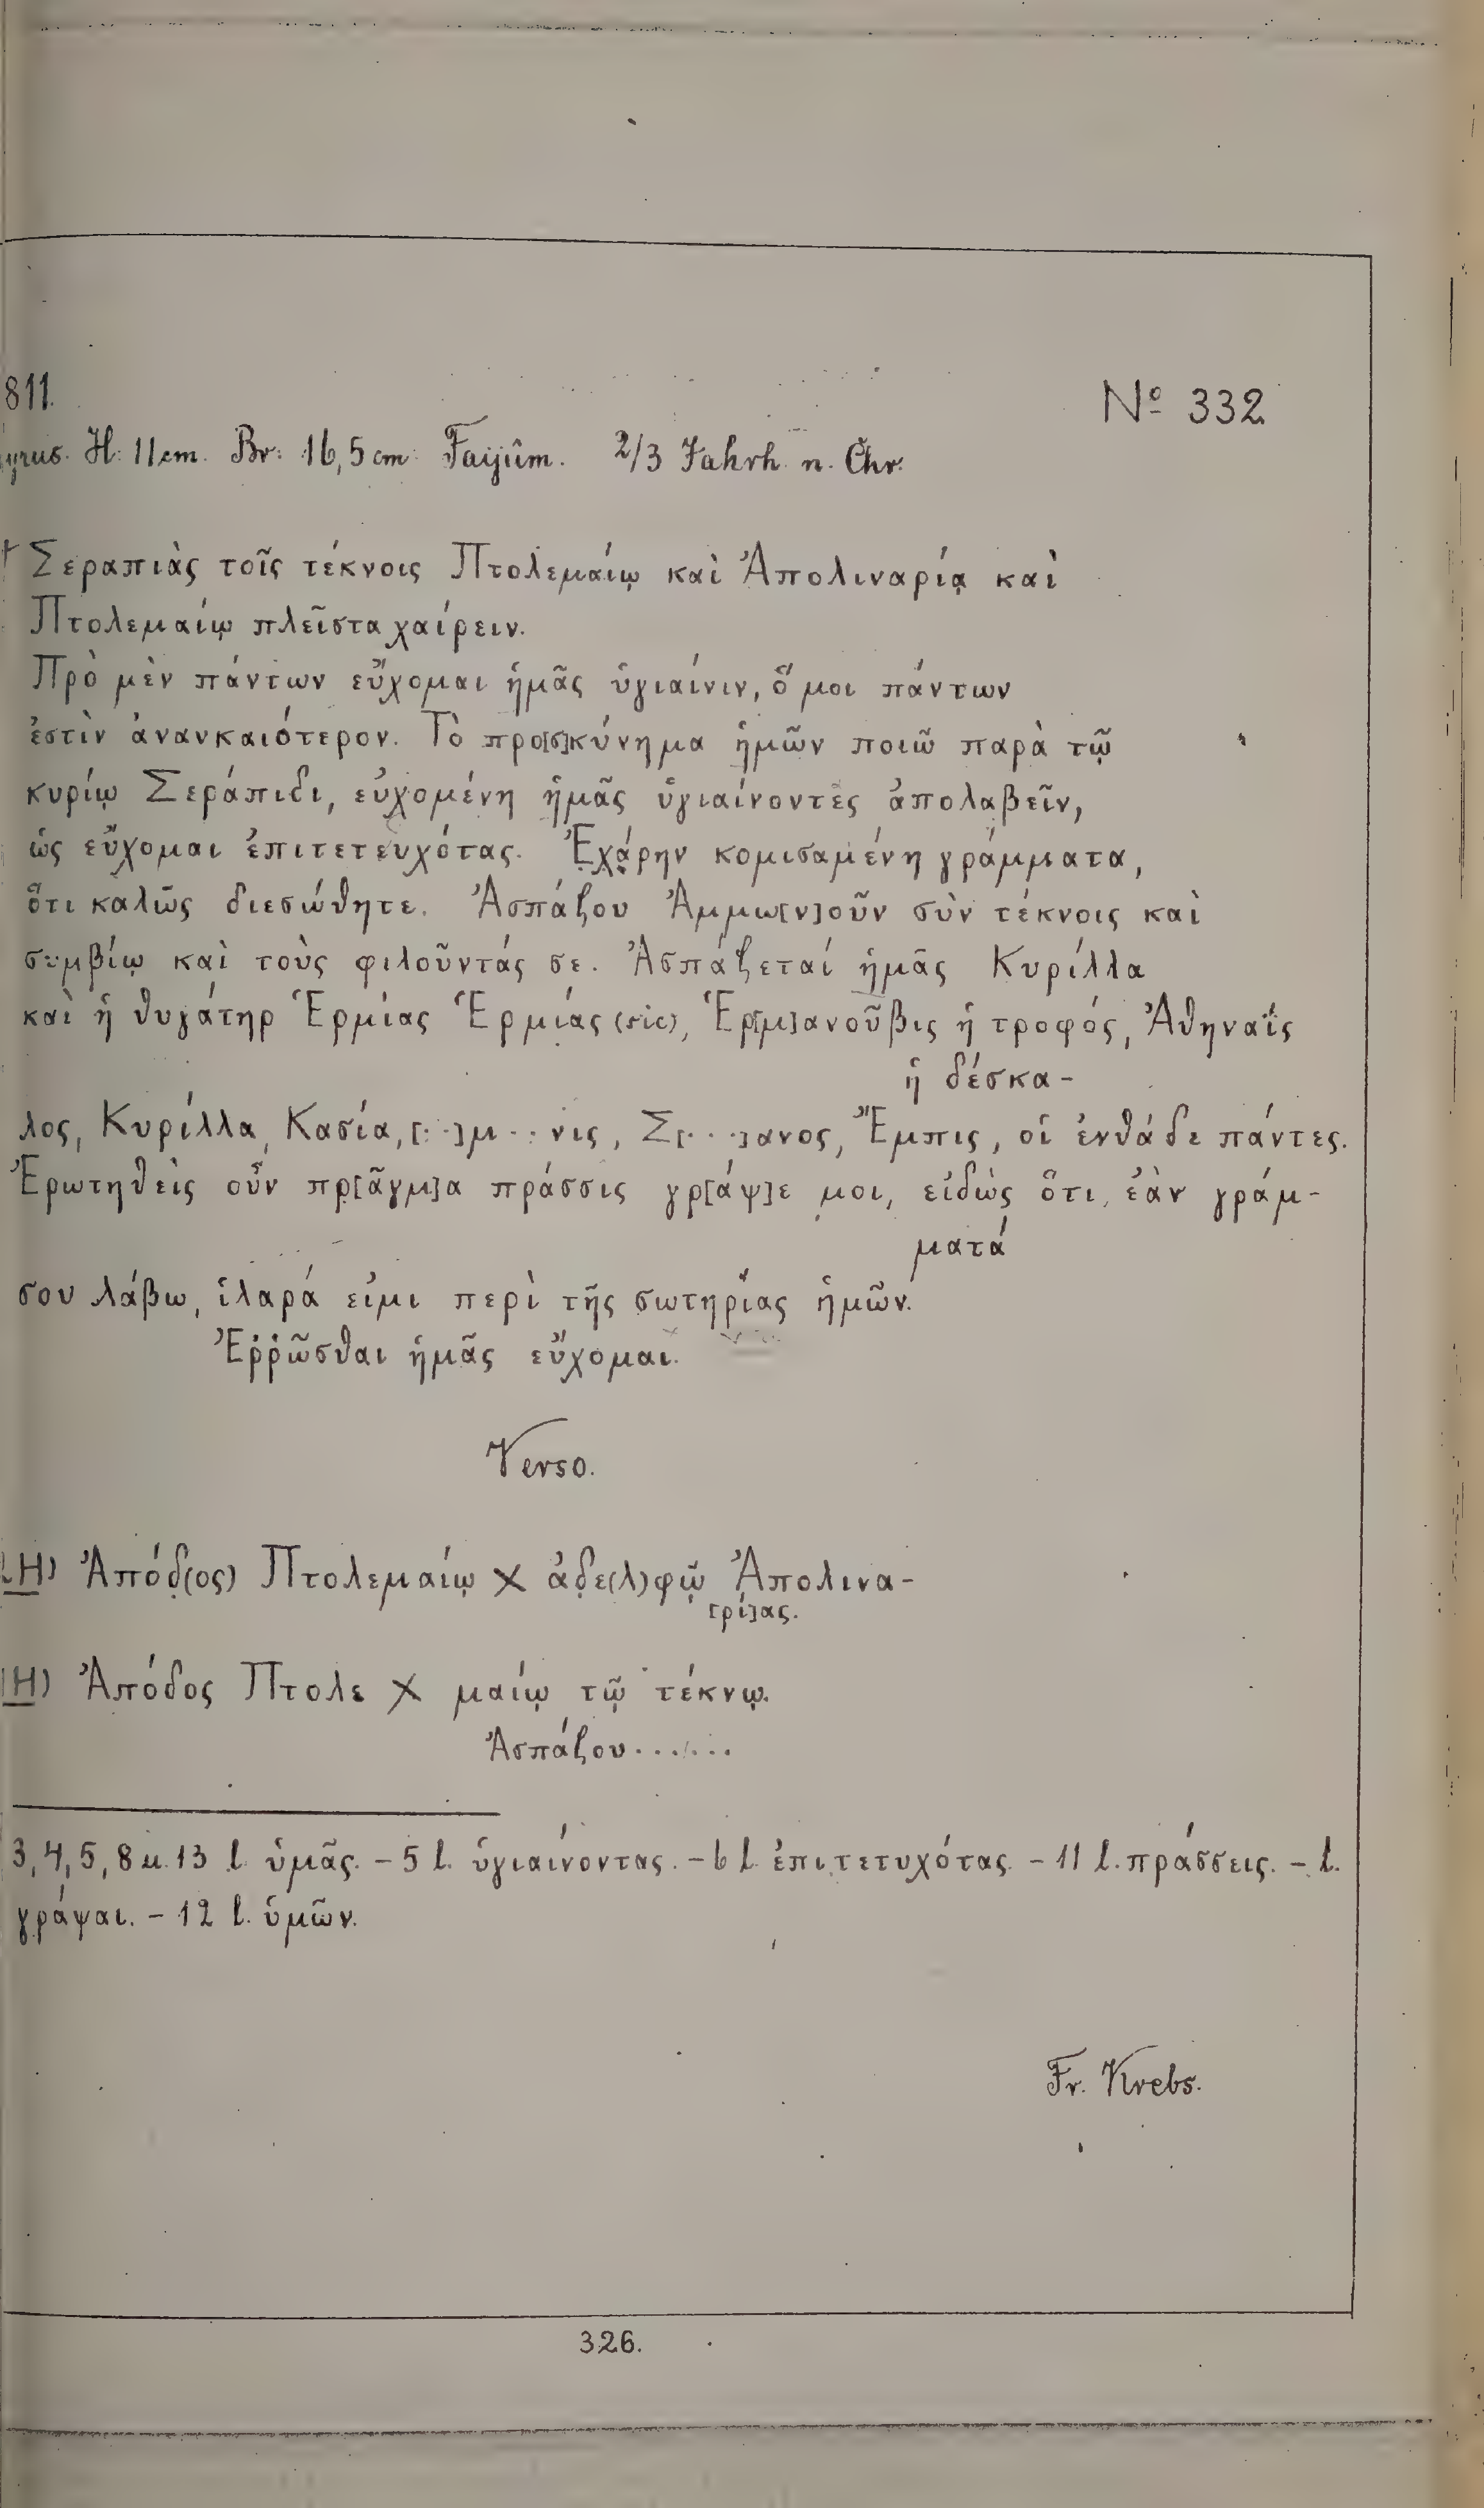 811.
Nº 332
H: 11 cm. Br: 16,5 cm. Faijûm. 2/3 Jahrh. n. Chr.
Σεραπιὰς τοῖς τέκνοις Πτολεμαίῳ καὶ Ἀπολιναρίᾳ καὶ
Πτολεμαίῳ πλεῖστα χαίρειν.
Πρὸ μὲν πάντων εὔχομαι ἡμᾶς ὑγιαίνιν, ὅ μοι πάντων
ἐστὶν ἀνανκαιότερον. Τὸ προ[σ]κύνημα ἡμῶν ποιῶ παρὰ τῷ
κυρίῳ Σεράπιδι, εὐχομένη ἡμᾶς ὑγιαίνοντες ἀπολαβεῖν,
ὡς εὔχομαι ἐπιτετευχότας. Ἐχά̣ρην κομισαμένη γράμματα,
ὅτι καλῶς διεσώθητε. Ἀσπάζου Ἀμμω[ν]οῦν σὺν τέκνοις καὶ
συμβίῳ καὶ τοὺς φιλοῦντάς σε. Ἀσπάζεταί ἡμᾶς Κυρίλλα
καὶ ἡ θυγάτηρ Ἑρμίας Ἑρμίας (sic), Ἑρ[μ]ανοῦβις ἡ τροφός, Ἀθηναΐς
ἡ δέσκα-
λος, Κυρίλλα, Κασία, [. .]μ . . νις, Σ[. . .]ανος, Ἔμπις, οἱ ἐνθάδε πάντες.
Ἐρωτηθεὶς οὖν πρ[ᾶγμ]α πράσσις γρ[άψ]ε μοι, εἰδὼς ὅτι, ἐὰν γράμ-
ματά
σου λάβω, ἱλαρά εἰμι περὶ τῆς σωτηρίας ἡμῶν.
Ἐῤῥῶσθαι ἡμᾶς εὔχομαι.
Verso.
H) Ἀπόδ̣(ος) Πτολεμαίῳ X ἀδ̣ε(λ)φῷ Ἀπολινα-
[ρί]ας.
H) Ἀπόδος Πτολε X μαίῳ τῷ τέκνῳ.
Ἀσπάζου . . . . . . .
3, 4, 5, 8 u. 13 l. ὑμᾶς. – 5 l. ὑγιαίνοντας. – 6 l. ἐπιτετυχότας. – 11 l. πράσσεις. – l.
γράψαι. – 12 l. ὑμῶν.
Fr. Krebs.
326.